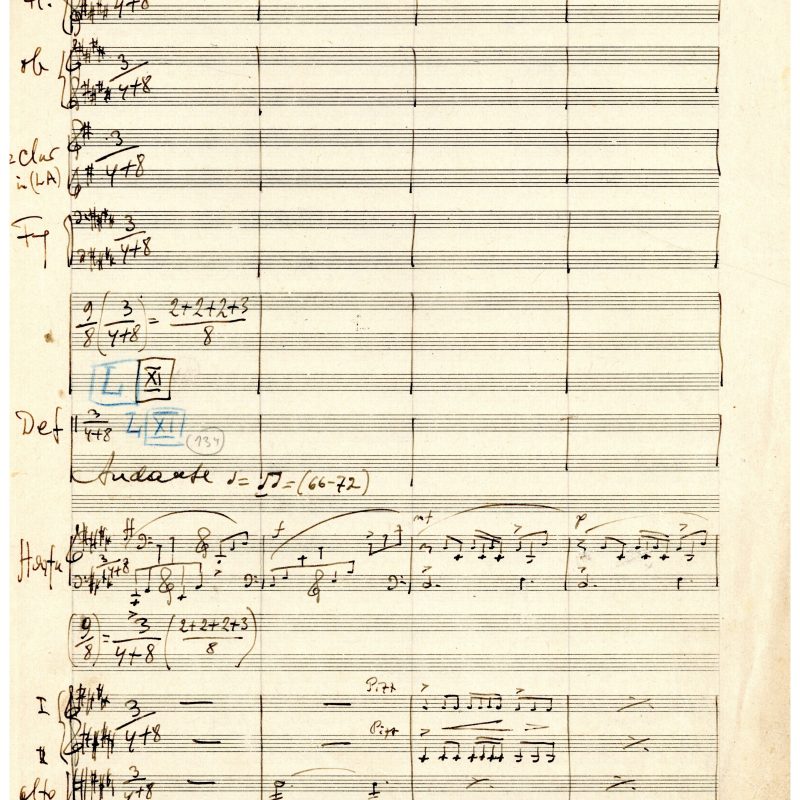 4+8
ob 3
4+8
2 Clar 3
in (LA) 4+8
Fg 3
4+8
9/8 (3/4+8) = 2+2+2+3/8
L XI
Def 3/4+8 L XI (134)
Andante ♩ = ♫ = (66-72)
f mf p
Harfa 3/4+8
(9/8) = 3/4+8 (2+2+2+3/8)
Pizz
I 3
4+8
Pizz
II
alto 3/4+8